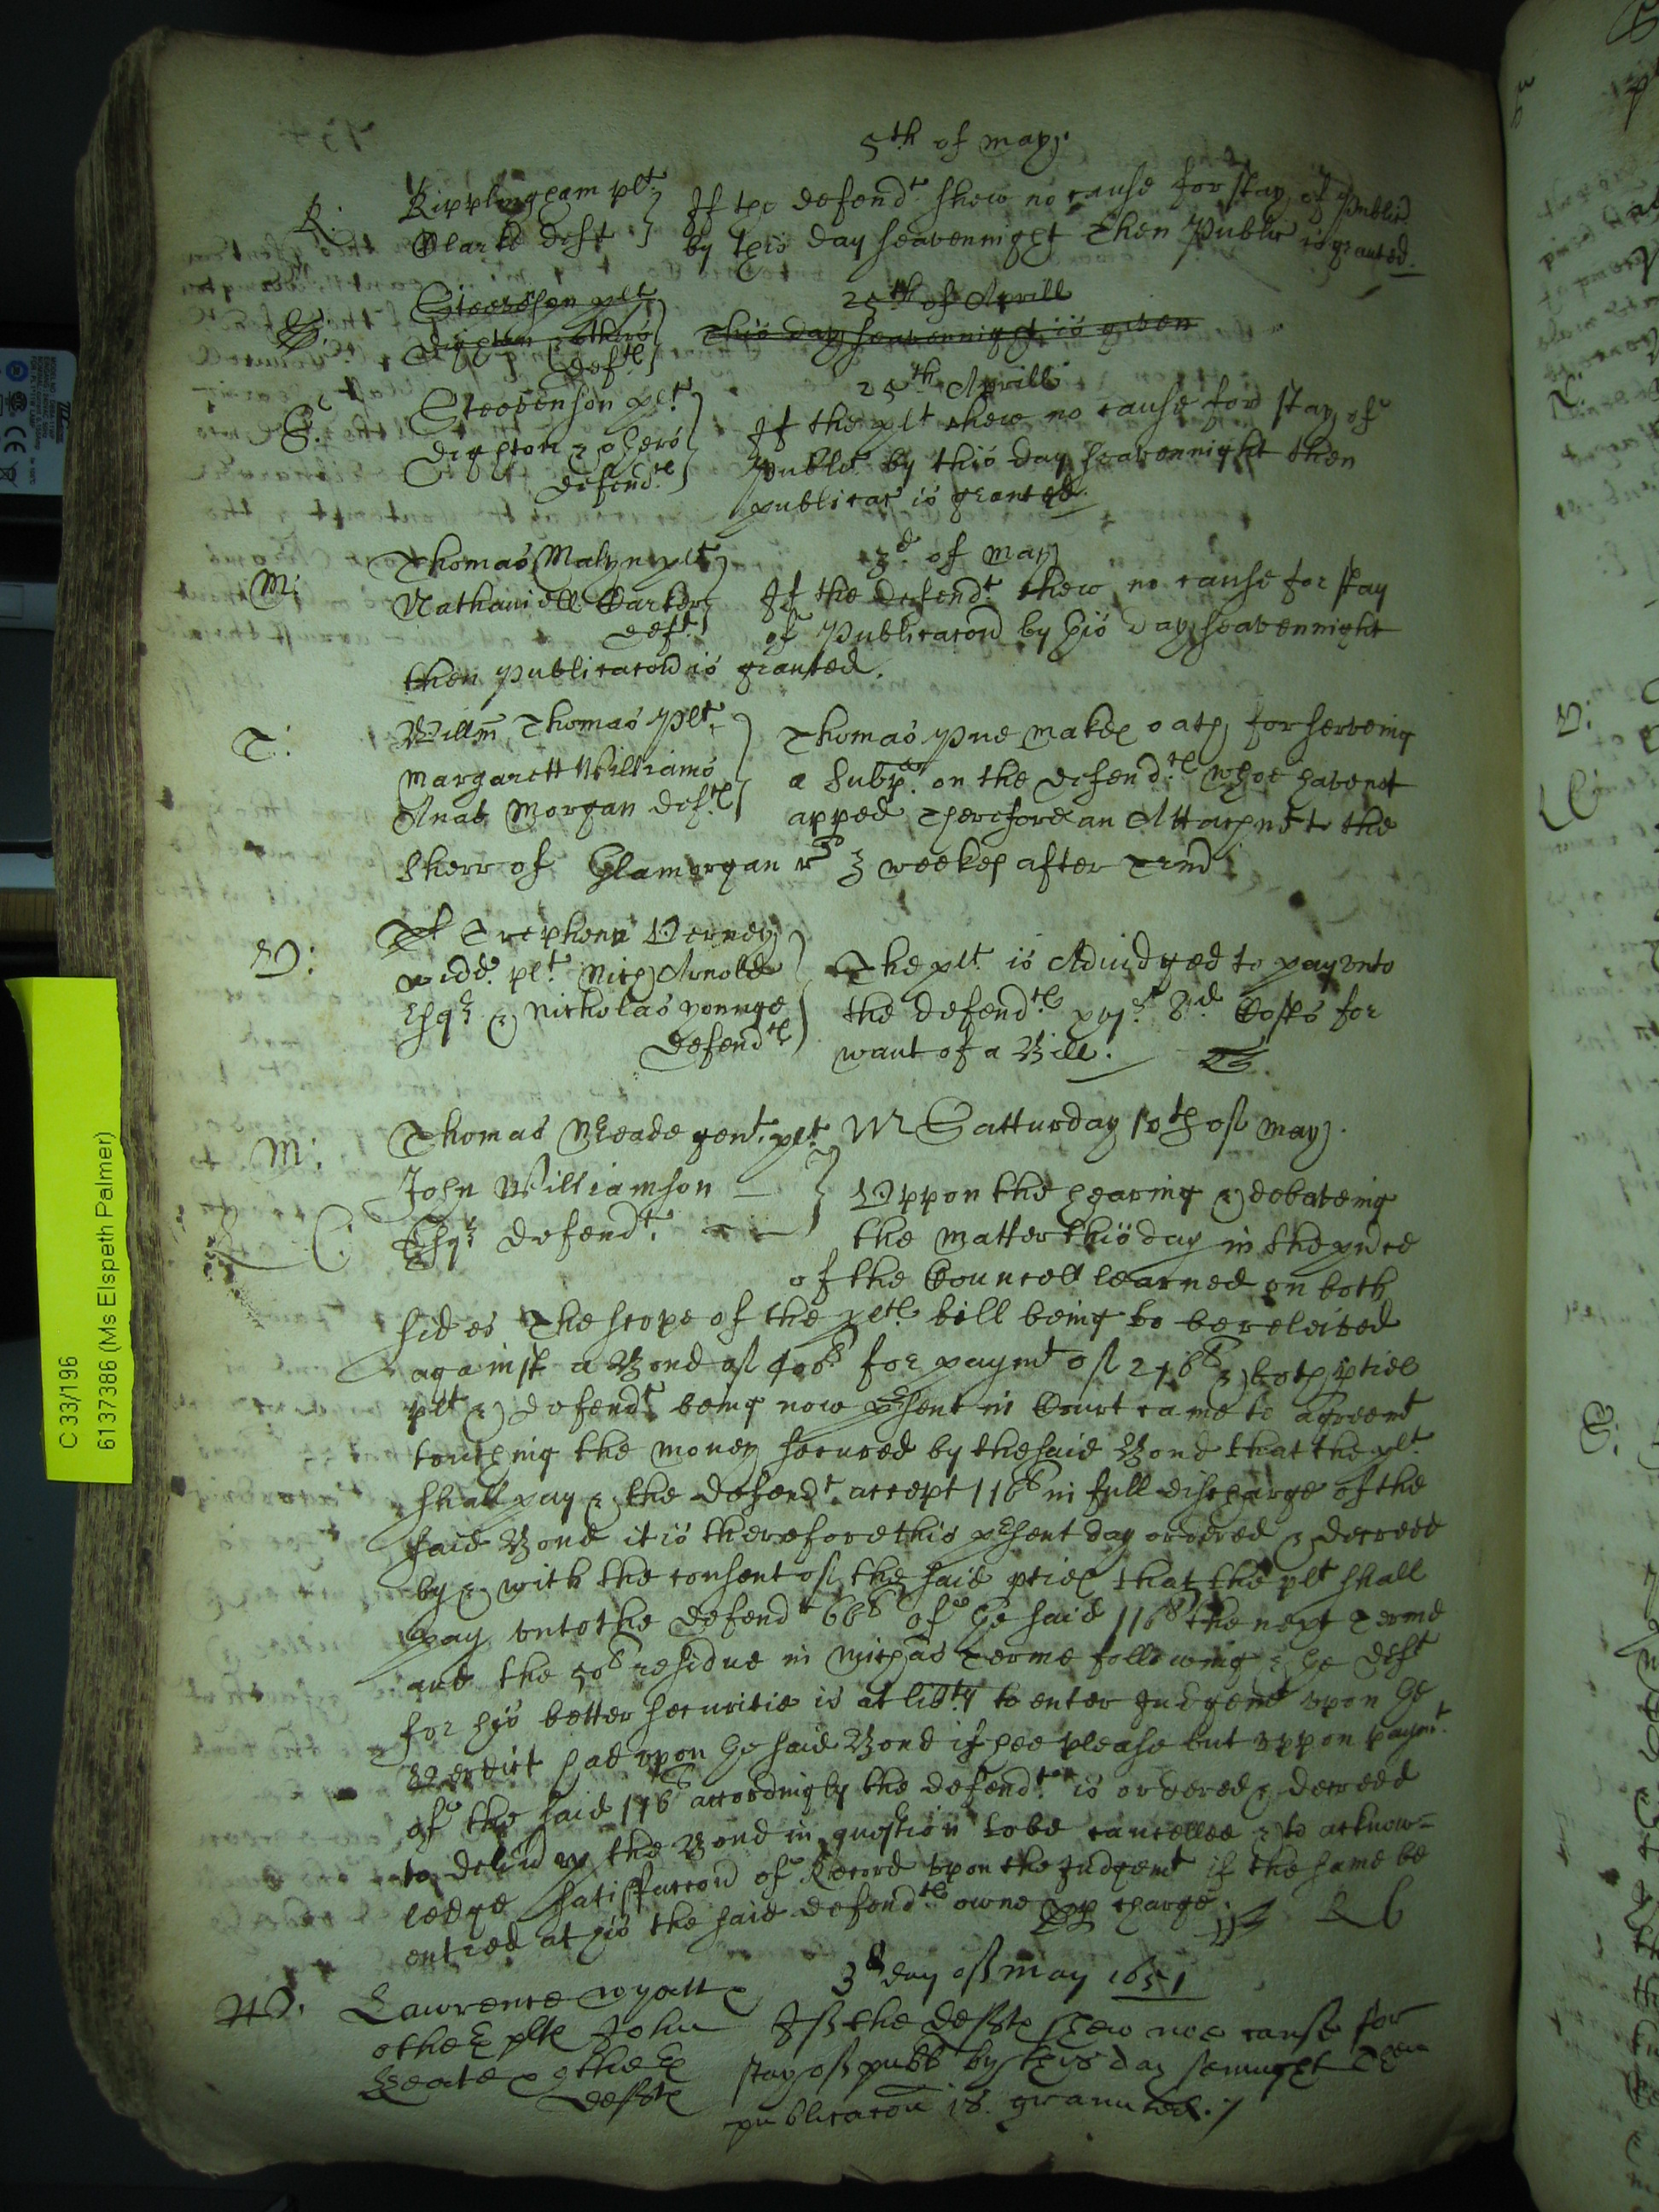 5th of may
R: Ripplingham plt If the defendt shew no cause for stay of Public
Clarke deft by this day seavennight then Public is granted.
S: Steevenson plt 25th of Aprill
Dighton & others This day seavennight is given
deftes
S: Steevenson plt 25th Aprill
Dighton & others If the plt shew no cause for stay of
defendtes Publict by this day seavennight then
publicac is granted
M: Thomas Malyn plt 3d of may
Nathaniell Barker If the defendt shew no cause for stay
deft of Publicacon by this day seavennight
then publicacon is granted.
T: Willm Thomas plt Thomas Pue makes oath for serveing
Margarett Williams a Subpa on the defendtes whoe have not
Anat Morgan deftes apped Therefore an Attachmt to the
Sherr of Glamorgan r 3 weekes after Trin
V: Stephen Verney
widd plt Rich Arnold The plt is Adiudged to pay unto
Esqr & Nicholas Younge the defendtes xvjs 8d Costs for
defendtes want of a Bill.
M: Thomas Meade gent plt M Satturday 10th of may
John Williamson Uppon the hearing & debateing
C: Esqr defendt the matter this day in the pnce
of the Councell learned on both
sides The scope of the pltes bill being to be releived
against a Bond of 400l for paymt of 216l & both pties
plt & defendt being now psent in Court came to agreemt
touching the money secured by the said Bond that the plt
shall pay & the defendt accept 116l in full discharge of the
said Bond it is therefore this psent day ordered & decreed
by & with the consent of the said pties that the plt shall
pay unto the defendt 66l of the said 116l the next Terme
and the 50l residue in Michas Terme following & the deft
for his better securitie is at libty to enter Judgemt upon the
Verdict had upon the said Bond if hee please but uppon paymt
of the said 116l accordingly the defendt is ordered & decreed
to deliv up the Bond in question to be cancelled & to acknow=
ledge satisfaccon of Record upon the Judgemt if the same be
entred at his the said defendtes owne charge
W: Lawrence Wyatt & 3d day of May 1651
others pltes John If the deftes shew noe cause for
& others stay of publ by this day sennight then
deftes publicacon is grannted.
C 33/196
6137386 (Ms Elspeth Palmer)